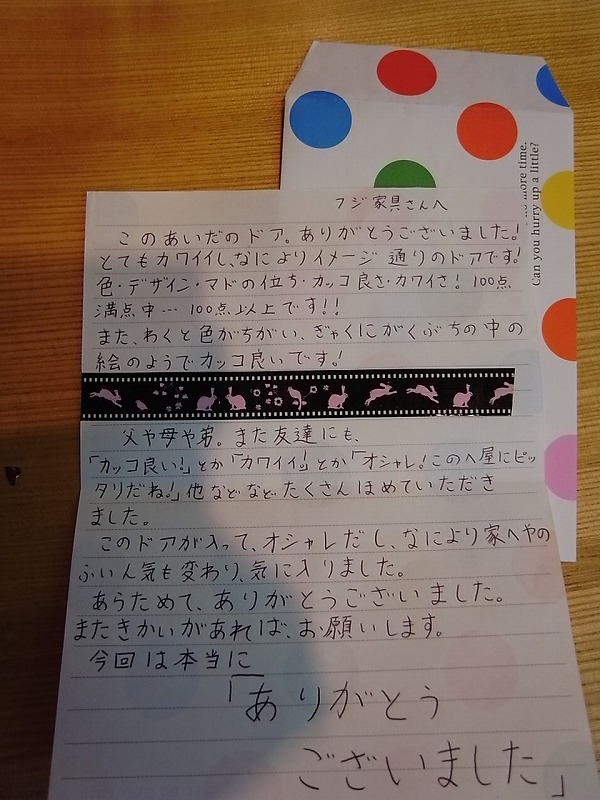 フジ家具さんへ
このあいだのドア。ありがとうございました!
とてもカワイイし、なによりイメージ通りのドアです!
色・デザイン・マドの位ち・カッコ良さ・カワイさ! 100点
満点中…100点以上です!!
また、わくと色がちがい、ぎゃくにがくぶちの中の
絵のようでカッコ良いです!
父や母や弟。また友達にも、
「カッコ良い!」とか「カワイイ!」とか「オシャレ!このへ屋にピッ
タリだね!」他などなどたくさんほめていただき
ました。
このドアが入って、オシャレだし、なにより家へやの
ふいん気も変わり、気に入りました。
あらためて、ありがとうございました。
またきかいがあれば、お願いします。
今回は本当に
「ありがとう
ございました」
more time.
Can you hurry up a little?